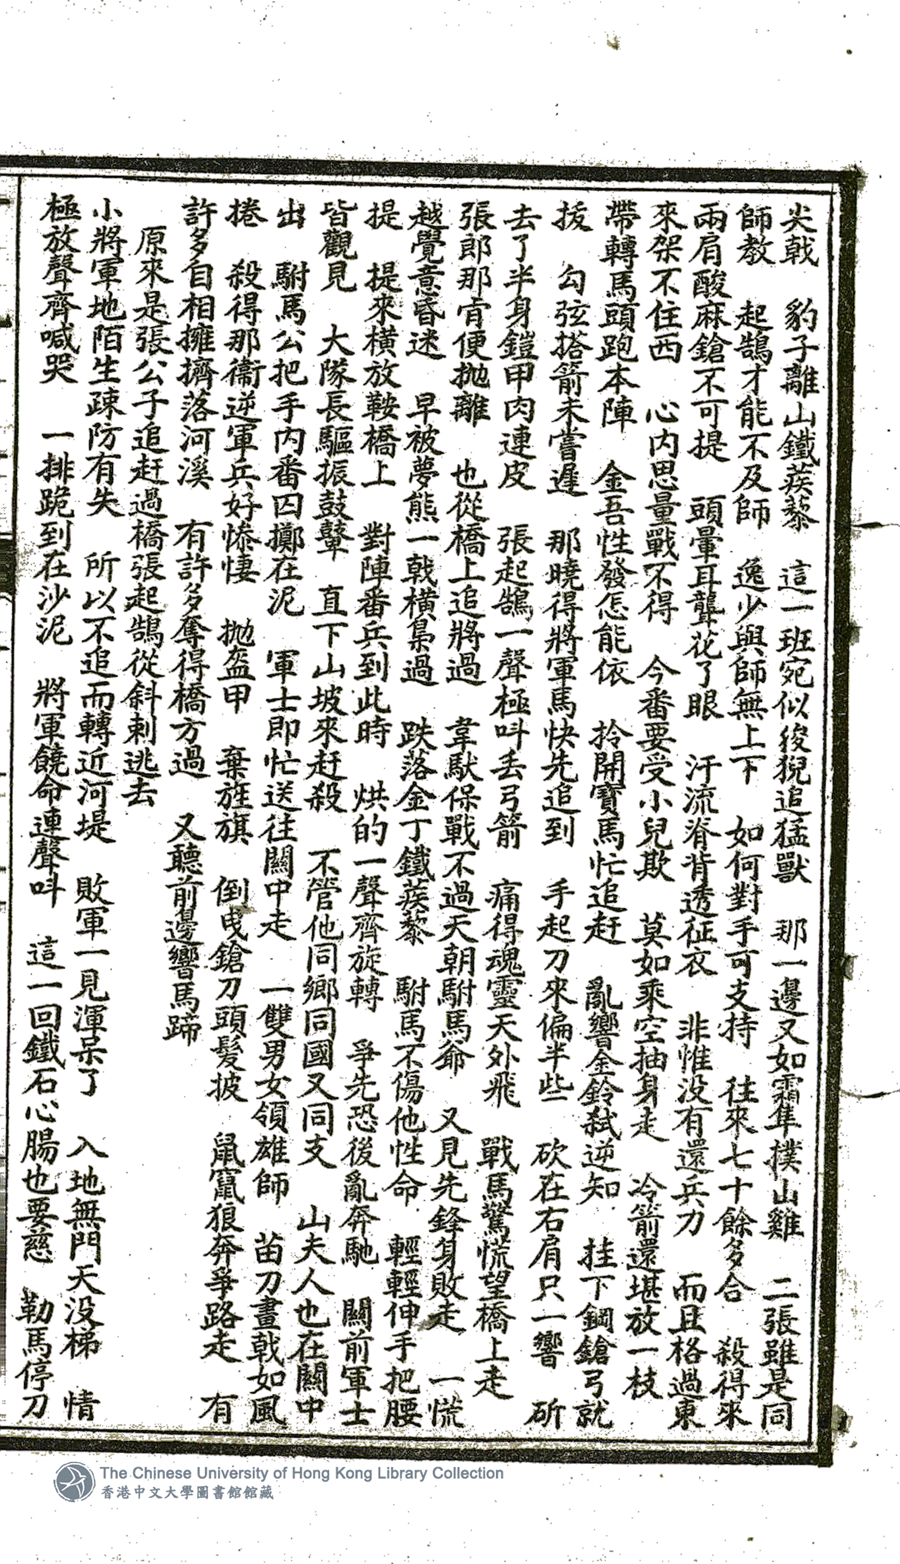 尖戟　豹子離山鐵蒺藜　這一班宛似狻猊追猛獸　那一邊又如霜隼撲山雞　二張雖是同
師教　起鵠才能不及師　逸少與師無上下　如何對手可支持　往來七十餘多合　殺得來
兩肩酸麻鎗不可提　頭暈耳聾花了眼　汗流脊背透征衣　非惟没有還兵刀　而且格過東
來架不住西　心内思量戰不得　今番要受小兒欺　莫如乘空抽身走　冷箭還堪放一枝
帶轉馬頭跑本陣　金吾性發怎能依　拎開寶馬忙追赶　亂響金鈴弑逆知　挂下鋼鎗弓就
拔　勾弦搭箭未嘗遲　那曉得將軍馬快先追到　手起刀來偏半些　砍在右肩只一響　斫
去了半身鎧甲肉連皮　張起鵠一聲極呌丢弓箭　痛得魂靈天外飛　戰馬驚慌望橋上走
張郎那肯便拋離　也從橋上追將過　韋馱保戰不過天朝駙馬爺　又見先鋒身敗走　一慌
越覺意昏迷　早被夢熊一戟橫梟過　跌落金丁鐵蒺藜　駙馬不傷他性命　輕輕伸手把腰
提　提來橫放鞍橋上　對陣番兵到此時　烘的一聲齊旋轉　爭先恐後亂奔馳　關前軍士
皆觀見　大隊長驅振鼓鼙　直下山坡來赶殺　不管他同鄉同國又同支　山夫人也在關中
出　駙馬公把手内番囚擲在泥　軍士即忙送往關中走　一雙男女領雄師　苗刀畫戟如風
捲　殺得那衞逆軍兵好慘悽　拋盔甲　棄旌旗　倒曳鎗刀頭髮披　鼠竄狼奔爭路走　有
許多自相擁擠落河溪　有許多奪得橋方過　又聽前邊響馬蹄
原來是張公子追赶過橋張起鵠從斜刺逃去
小將軍地陌生疎防有失　所以不追而轉近河堤　敗軍一見渾呆了　入地無門天没梯　情
極放聲齊喊哭　一排跪到在沙泥　將軍饒命連聲呌　這一回鐵石心腸也要慈　勒馬停刀
The Chinese University of Hong Kong Library Collection
香港中文大學圖書館館藏